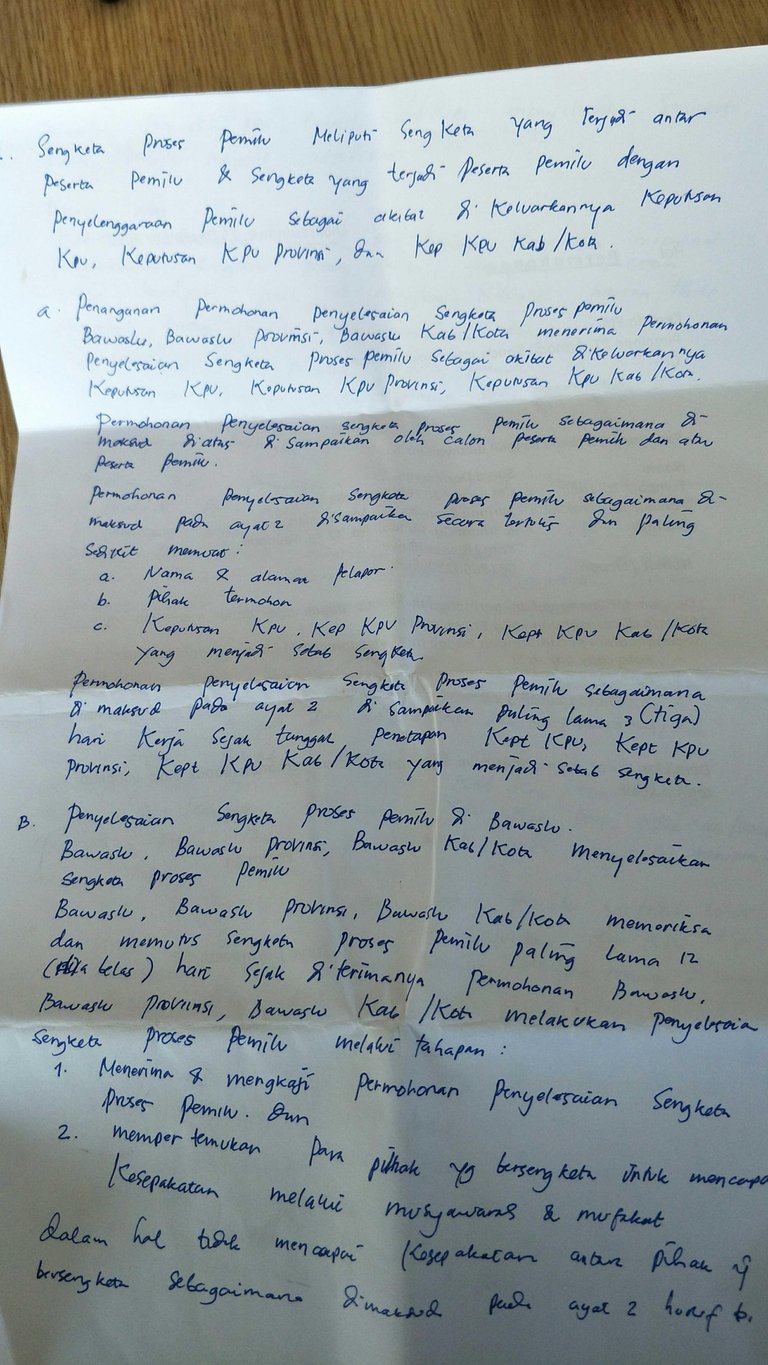 Sengketa proses pemilu Meliputi Sengketa yang terjadi antar
peserta pemilu & Sengketa yang terjadi peserta pemilu dengan
penyelenggaraan pemilu sebagai akibat di Keluarkannya Keputusan
Kpu, Keputusan KPU Provinsi, dan Kep KPU Kab/Kota.
a. Penanganan permohonan penyelesaian Sengketa proses pemilu
Bawaslu, Bawaslu provinsi, Bawaslu Kab/Kota menerima permohonan
penyelesaian Sengketa proses pemilu sebagai akibat dikeluarkannya
Keputusan KPU, Keputusan KPU Provinsi, Keputusan KPU Kab/Kota.
Permohonan penyelesaian sengketa proses pemilu sebagaimana di-
maksud diatas di sampaikan oleh calon peserta pemilu dan atau
peserta pemilu.
permohonan penyelesaian Sengketa proses pemilu sebagaimana di-
maksud pada ayat 2 disampaikan secara tertulis dan paling
sedikit memuat :
a. Nama & alamat pelapor.
b. pihak termohon
c. Keputusan KPU, Kep KPU Provinsi, Kept KPU Kab/Kota
yang menjadi sebab sengketa.
permohonan penyelesaian Sengketa proses pemilu sebagaimana
di maksud pada ayat 2 di sampaikan paling lama 3 (tiga)
hari Kerja sejak tanggal penetapan Kept KPU, Kept KPU
provinsi, Kept KPU Kab/Kota yang menjadi sebab sengketa.
B. penyelesaian Sengketa proses pemilu di Bawaslu.
Bawaslu, Bawaslu Provinsi, Bawaslu Kab/Kota menyelesaikan
sengketa proses pemilu
Bawaslu, Bawaslu provinsi, Bawaslu Kab/Kota memeriksa
dan memutus sengketa proses pemilu paling lama 12
belas) hari sejak diterimanya permohonan Bawaslu,
Bawaslu provinsi, Bawaslu Kab/Kota melakukan penyelesaian
sengketa proses pemilu melalui tahapan :
1. Menerima & mengkaji permohonan penyelesaian Sengketa
proses pemilu. dan
2. mempertemukan para pihak yg bersengketa untuk mencapa
Kesepakatan melalui musyawarah & mufakat
dalam hal tidak mencapai Kesepakatan antara pihak y
bersengketa sebagaimana dimaksud pada ayat 2 huruf b.